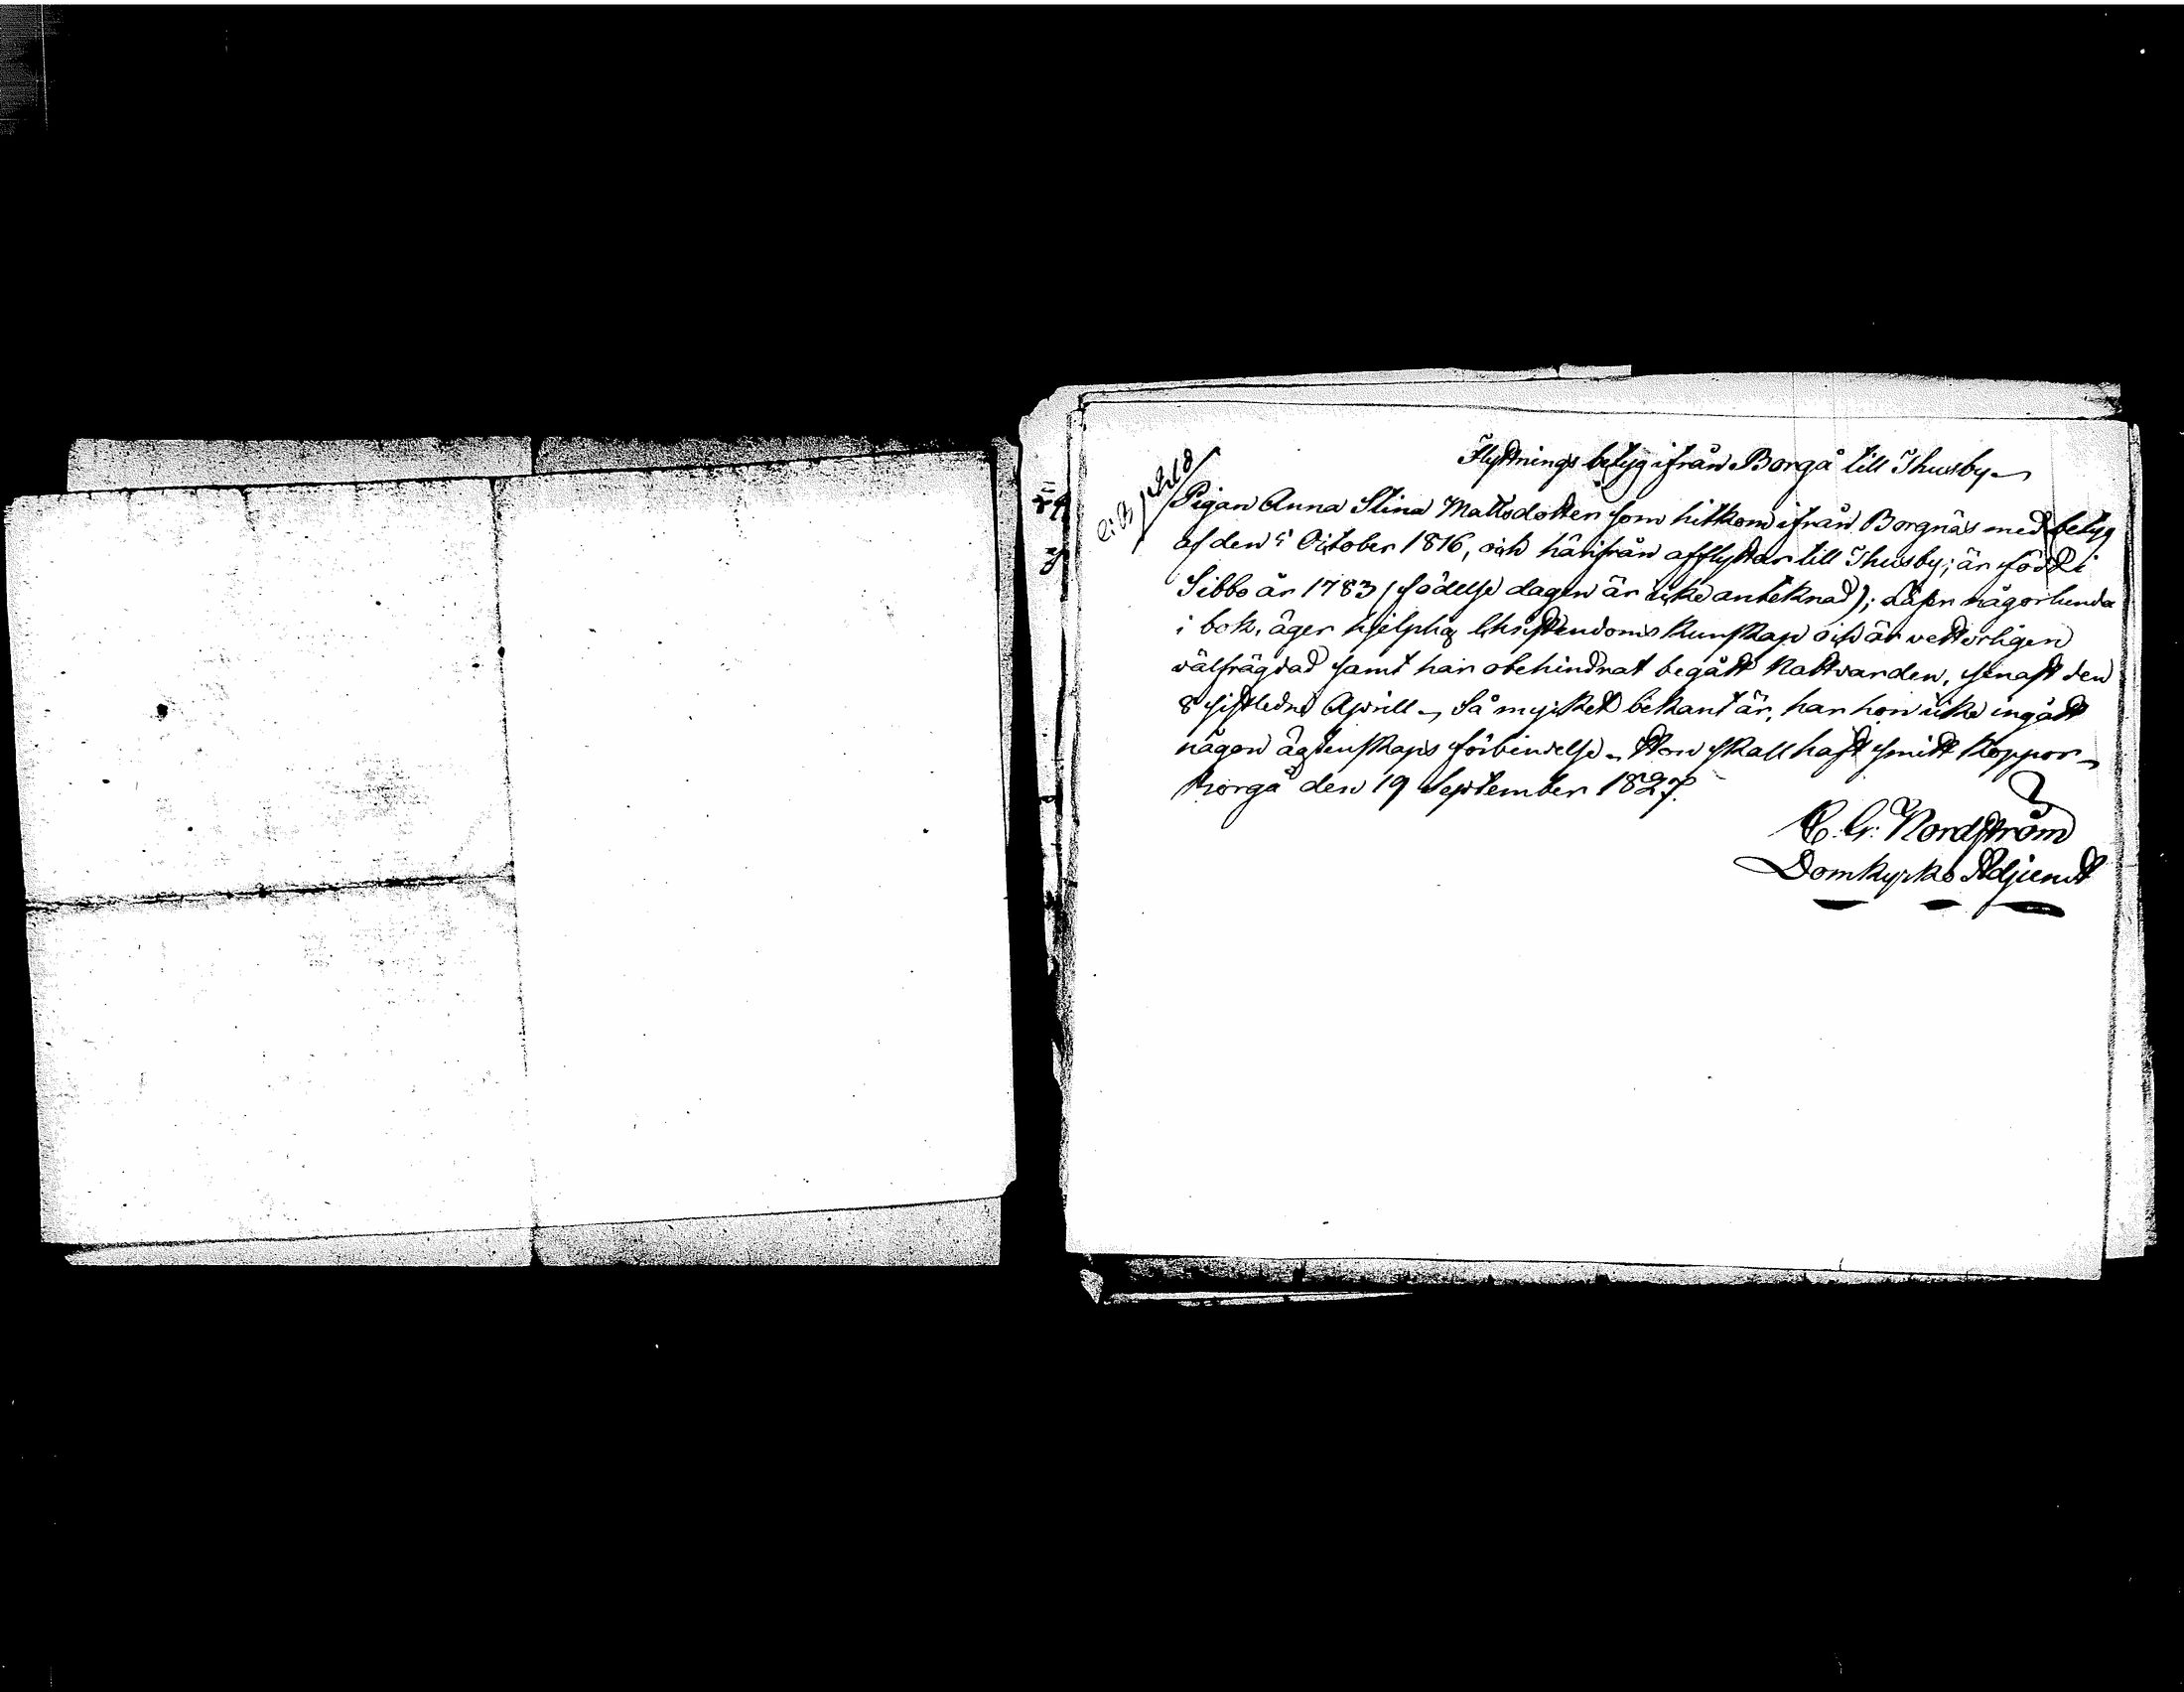 Flyttnings betyg ifrån Borgå till Thusby
Pigan Anna Stina Mattsdotter som hitkom ifrån Borgnäs med betyg
af den 5 October 1816, och härifrån afflyttar till Thusby; är född i
Sibbo år 1783 (födelse dagen är icke anteknad); Läser någorlunda
i bok, äger hjelplig Christendoms kunskap och är vetterligen
välfrägdad samt har obehindrat begått Nattvarden, senast den
8 sistledne Aprill. Så mycket bekant är, har hon icke ingått
någon ägtenskaps förbindelse. Hon skall haft smitt koppor
Borgå den 19 September 1827.
C. G. Nordström
Domkyrko Adjunct